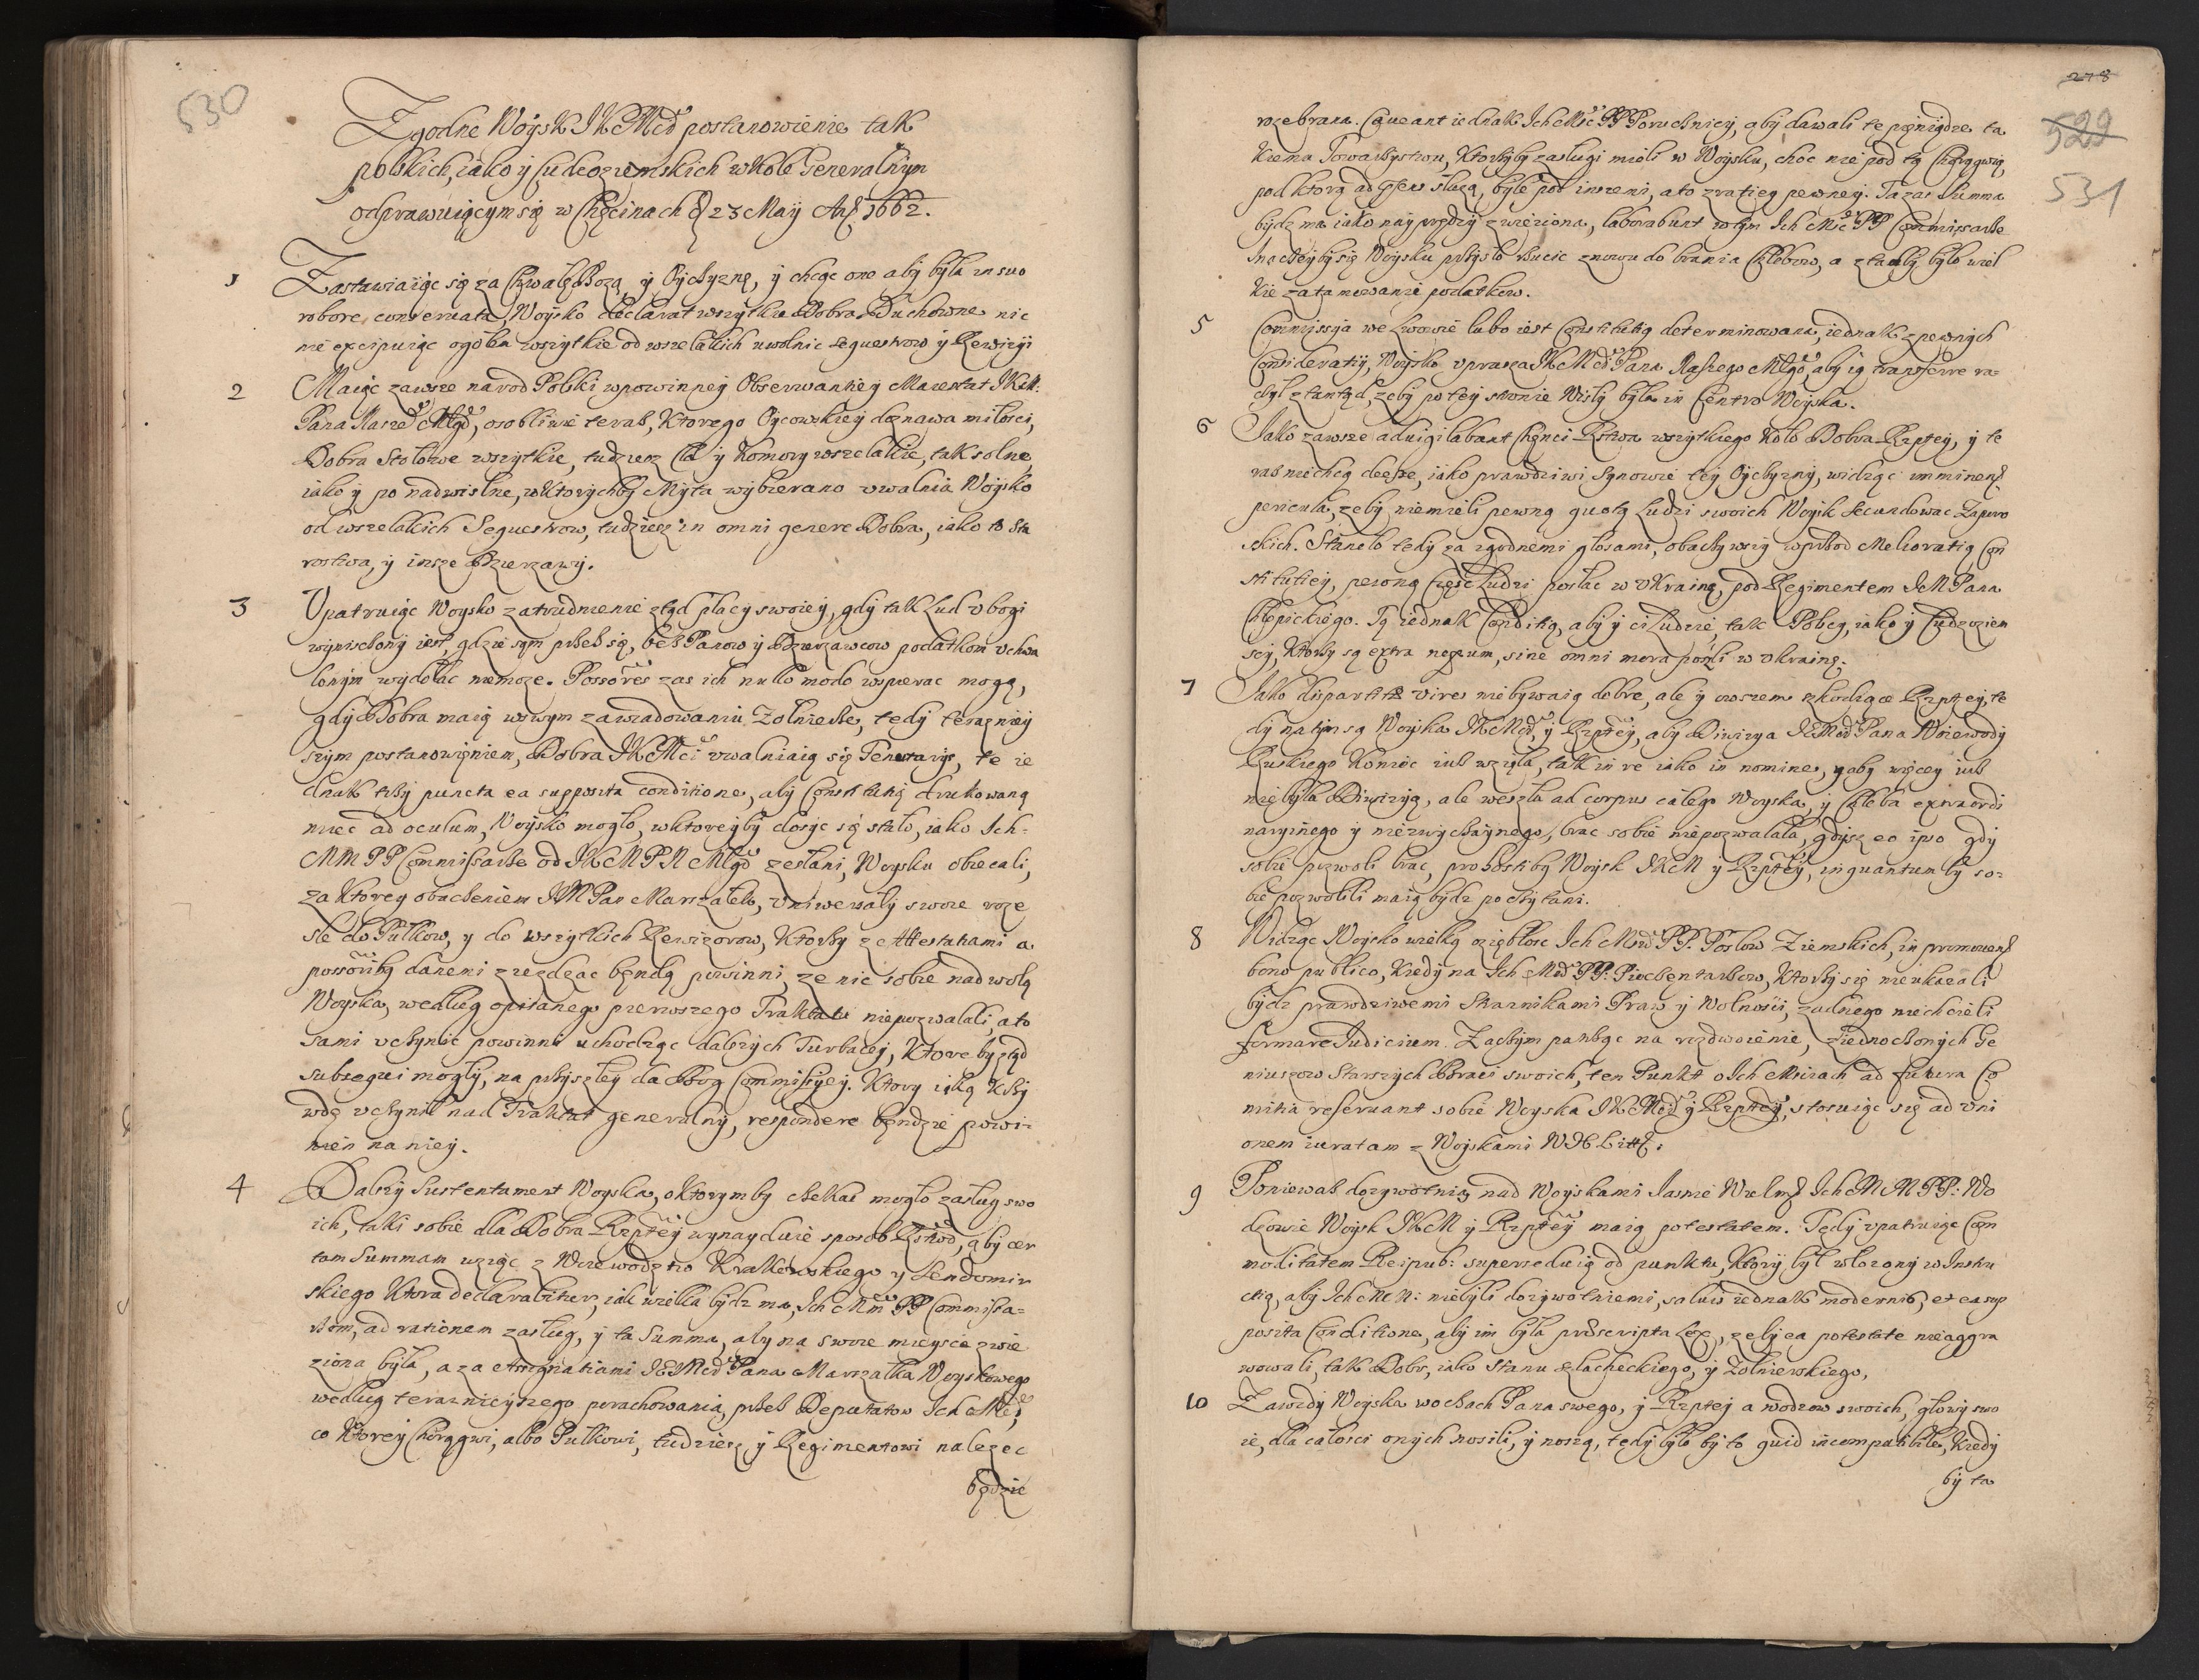 530
Zgodne Woysk JKMći postanowienie tak
polskich, iako y Cudzoziemskich w kole Generalnym
odprawuiącym się w Chęcinach d 23 May Aō 1662.
1 Zastawiaiąc się za Chwałę Bozą, y Oyczyznę, y chcąc one aby była in suo
robore conseruata, Woysko declarat wszytkie Dobra Duchowne nic
nie excipuiąc ogółem wszytkie od wszelakich uwolnic sequestrow y Rewizyi
2 Maiąc zawsze narod Polski w powinney Obserwantiey Maiestat JKM:
Pana Naszeº Młgº, osobliwie teraz, Ktorego Oycowskiey doznawa miłosci,
Dobra Stołowe wszytkie, tudziesz Cła y Komory wszelakie, tak solne,
iako y po nadwislne, w Ktorychby Myta wybierano uwalnia Woysko
od wszelakich Sequestrow, tudziesz in omni genere Dobra, iako to Sta
rostwa, y insze Dzierzawy.
3 Upatruiąc Woysko zatrudnienie ztąd płacy swoiey, gdy tak Lud ubogi
wyniszczony iest, gdzie sam przez się, bez Panow y Dzierzawcow podatkom uchwa
lonym wydołac niemoze. Possōres zas ich nullo modo wspierac mogą,
gdy Dobra maią w swym zawiadowaniu Zołnierze, tedy terazniey
szym postanowięniem, Dobra JKMći uwalniaią się Tenutarys, te ie
dnak trzy puncta ea supposita conditione, aby Constitutią drukowaną
miec ad oculum, Woysko mogło, w ktoreyby dosyc się stało, iako Ich=
MM PP Commissarze od JKM P N Młgº zesłani, Woysku obiecali,
za Ktorey obaczeniem JM Pan Marszałek, Uniwersały swoie roze
sle do Pułkow, y do wszytkich Rewizorow, Ktorzy ze Attestatiami a
possorībg danemi ziezdzac będą powinni, ze nic sobie nad wolą
Woyska, według opisanego pierwszego Traktatu niepozwalali, a to
sami uczynic powinni uchodząc dalszych Turbacey, Ktore by ztąd
subsequi mogły, na przyszłey da Bog Commissyey. Ktory iaką Krzy
wdę uczynił nad Traktat generalny, respondere będzie powi=
nien na niey.
4 Dalszy Sustentament Woyska, o Ktorym by czekac mogło zasług swo
ich, taki sobie dla Dobra Rzptey wynayduie sposob, aby cer
tam Summam wziąc z Wiewodztwo Krakowskiego y Sendomir
skiego Ktora declarabitur, iak wielka bydz ma, Ich Mm PP Commissa=
rzom, ad rationem zasług, y ta Summa, aby na swoie mieysce zwie
ziona była, a za Assignatiami JMći Pana Marszałka Woyskowego
według terazniejszego porachowania, przez Deputatow Ich Mći,
co Ktorey Chorągwi, albo Pułkowi, tudziesz y Regimentowi nalezec
będzie
278
529
531
rozebrana. Caueant iednak Ich Mść PP Porucznicy, aby dawali te pięniądze ta
kiemu Towarzystwu, Ktorzyby zasługi mieli w Woysku, choc nie pod tą Chorągwią,
pod ktorą ad pñs słuzą, byle pod inszemi, a to z ratiey pewney. Ta zas Summa
bydz ma iako nayprędzy zwieziona, laborabunt w tym Ich Mść PP Commissarze
Inaczey by się Woysku przyszło rzucic znowu do brania Chlebow, a ztamby było wiel
kie zatamowanie podatkow.
5 Commissya we Lwowie lubo iest Constitutią determinowana, iednak z pewnych
Consideratiy, Woysko uprasza JKMći Pana Naszego Młgº, aby ią transferre ra=
czył ztamtąd, zeby po tey stronie Wisły była in Centro Woyska.
6 Jako zawsze aduigilabant Chęnci Rstwa wszytkiego koło Dobra Rzptey, y te
raz niechcą deesse, iako prawdziwi Synowie tey Oyczyzny, widząc imminenƷ
pericula, zeby niemieli pewną quotą Ludzi swoich Woysk secundowac Zaporo
skich. Staneło tedy za zgodnemi głosami, obaczywszy wprzod Melioratią Con
stitutiey, pewną Częsc Ludzi posłac w Ukrainę, pod Regimentem JM Pana
Chlepickiego. Tą iednak Conditią, aby y ci Ludzie, tak Polscy, iako y Cudzoziem
scy, Ktorzy są extra nexum, sine omni mora poszli w Ukrainę.
7 Jako dispartitæ vires niebywaią dobre, ale y owszem szkodzące Rzptey, te
dy na tym są Woyska JKMći y Rzptey, aby Diwizya JMći Pana Woiewody
Ruskiego Koniec iusz wzięła, tak in re iako in nomine, y aby więcey iusz
nie była Diwizyą, ale weszła ad corpus całego Woyska, y Chleba extraordi
naryinego y niezwyczaynego, brac sobie niepozwalała, gdysz eo ipso gdy
sobie pozwoli brac, pro hostibg Woysk JKM y Rzptey, inquantum by so=
bie pozwolili maią bydz poczytani.
8 Widząc Woysko wielką oziębłosc Ich Mciow PP. Posłow Ziemskich, in promouenƷ
bono publico, Kiedy na Ich Mć PP: Pieczentarzow, Ktorzy się nieukazali
bydz prawdziwemi Straznikami Praw y Wolnosci, zadnego niechcieli
formare Judicium. Zaczym patrząc na rozdwoienie, ziednoczonych Ge
niuszow Starszych Braci swoich, ten Punkt o Ich Mciach ad futura Co
mitia reseruant sobie Woyska JKMći y Rzptey, stosuiąc się ad uni
onem iuratam z Woyskami WXLittƷ.
9 Poniewasz dozywotnią nad Woyskami Jasnie WielmƷ Ich MM PP: Wo
dzowie Woysk JKM y Rzptey maią potestatem. Tędy upatruiąc Com
moditatem Reipub: supersedeuią od punktu, Ktory był włozony w Instru
ctią, aby Ich MM: niebyli dozywotniemi, saluis iednak modernis, et ea sup
posita Conditione, aby im była præscripta Lex, zeby ea potestate nieaggra
wowali, tak Dobr, iako Stanu szlacheckiego, y Zołnierskiego.
10 Zawzdy Woyska w oczach Pana swego, y Rzptey a wodzow swoich, głowy swo
ie, dla całosci onych nosili, y noszą, tedy było by to quid incompatibile, Kiedy
by ta